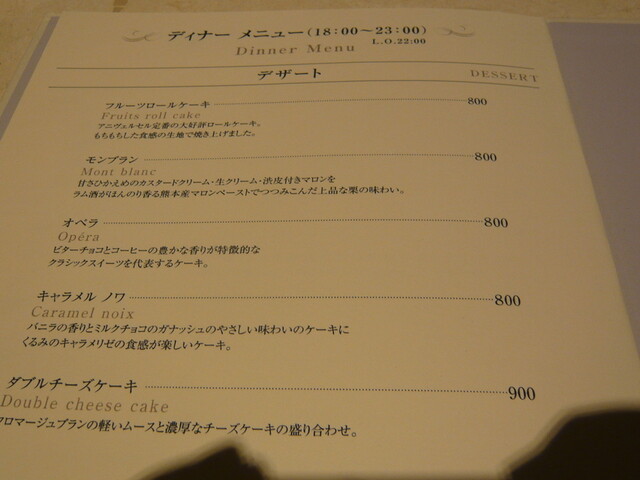 ディナー メニュー(18:00～23:00)
Dinner Menu L.O.22:00
デザート DESSERT
フルーツロールケーキ 800
Fruits roll cake
アニヴェルセル定番の大好評ロールケーキ。
もちもちした食感の生地で焼き上げました。
モンブラン 800
Mont blanc
甘さひかえめのカスタードクリーム・生クリーム・渋皮付きマロンを
ラム酒がほんのり香る熊本産マロンペーストでつつみこんだ上品な栗の味わい。
オペラ 800
Opéra
ビターチョコとコーヒーの豊かな香りが特徴的な
クラシックスイーツを代表するケーキ。
キャラメル ノワ 800
Caramel noix
バニラの香りとミルクチョコのガナッシュのやさしい味わいのケーキに
くるみのキャラメリゼの食感が楽しいケーキ。
ダブルチーズケーキ 900
Double cheese cake
フロマージュブランの軽いムースと濃厚なチーズケーキの盛り合わせ。